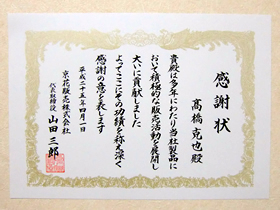 感謝状
高橋克也殿
貴殿は多年にわたり当社製品に
おいて積極的な販売活動を展開し
大いに貢献しました
よってここにその功績を称え深く
感謝の意を表します
平成二十五年四月一日
京花販売株式会社
代表取締役 山田三郎